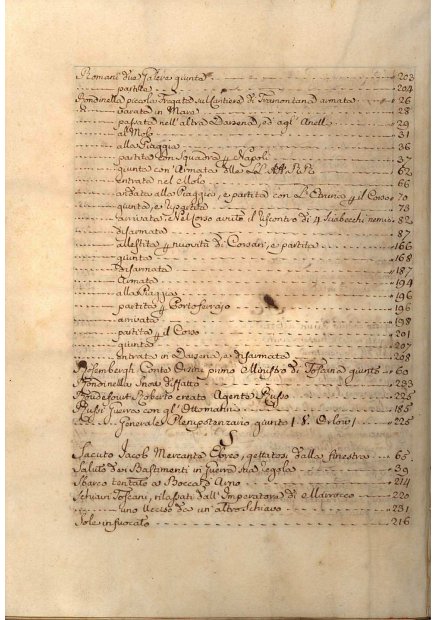 Romani due Galere giunte 203
partite 204
Rondinella piccola Fregata sul Cantiere di Tramontana armata 26
varata in Mare 28
passata nell'altra Darsena, ed agl'Anelli 29
al Molo 31
alla Piaggia 36
partita con Squadra p Napoli 37
giunta con l'Armata delle LL. AA. RR. 62
entrata nel Molo 66
andata alla Piaggia, e partita con L'Etruria p il Corso 70
giunta, e ripartita 73
arrivata, e nel Corso avuto il riscontro di 4 Sciabecchi nemici 82
disarmata 87
allestita p nuovità di Corsari, e partita 166
giunta 168
disarmata 187
Armata 194
alla Piaggia 196
partita p Portoferraio 196
arrivata 198
partita p il Corso 201
giunta 207
entrata in Darsena, e disarmata 208
Rosembergh Conte Orsini primo Ministro di Toscana giunto 60
Rondinella Snow disfatto 233
Roberto creato Agente Russo 225
Russi Guerra con gl'Ottomanni 185
Generale Plenipotenziario giunto Orlow 225
S
Sacuto Jacob Mercante Ebreo, gettatosi dalla finestra 65
Saluto dei Bastimenti in Guerra sua regola 39
Sbarco tentato a Bocca d'Arno 214
Schiavi Toscani, rilasciati dall'Imperatore di Marrocco 220
uno ucciso da un'altro Schiavo 231
Sole infuocato 216